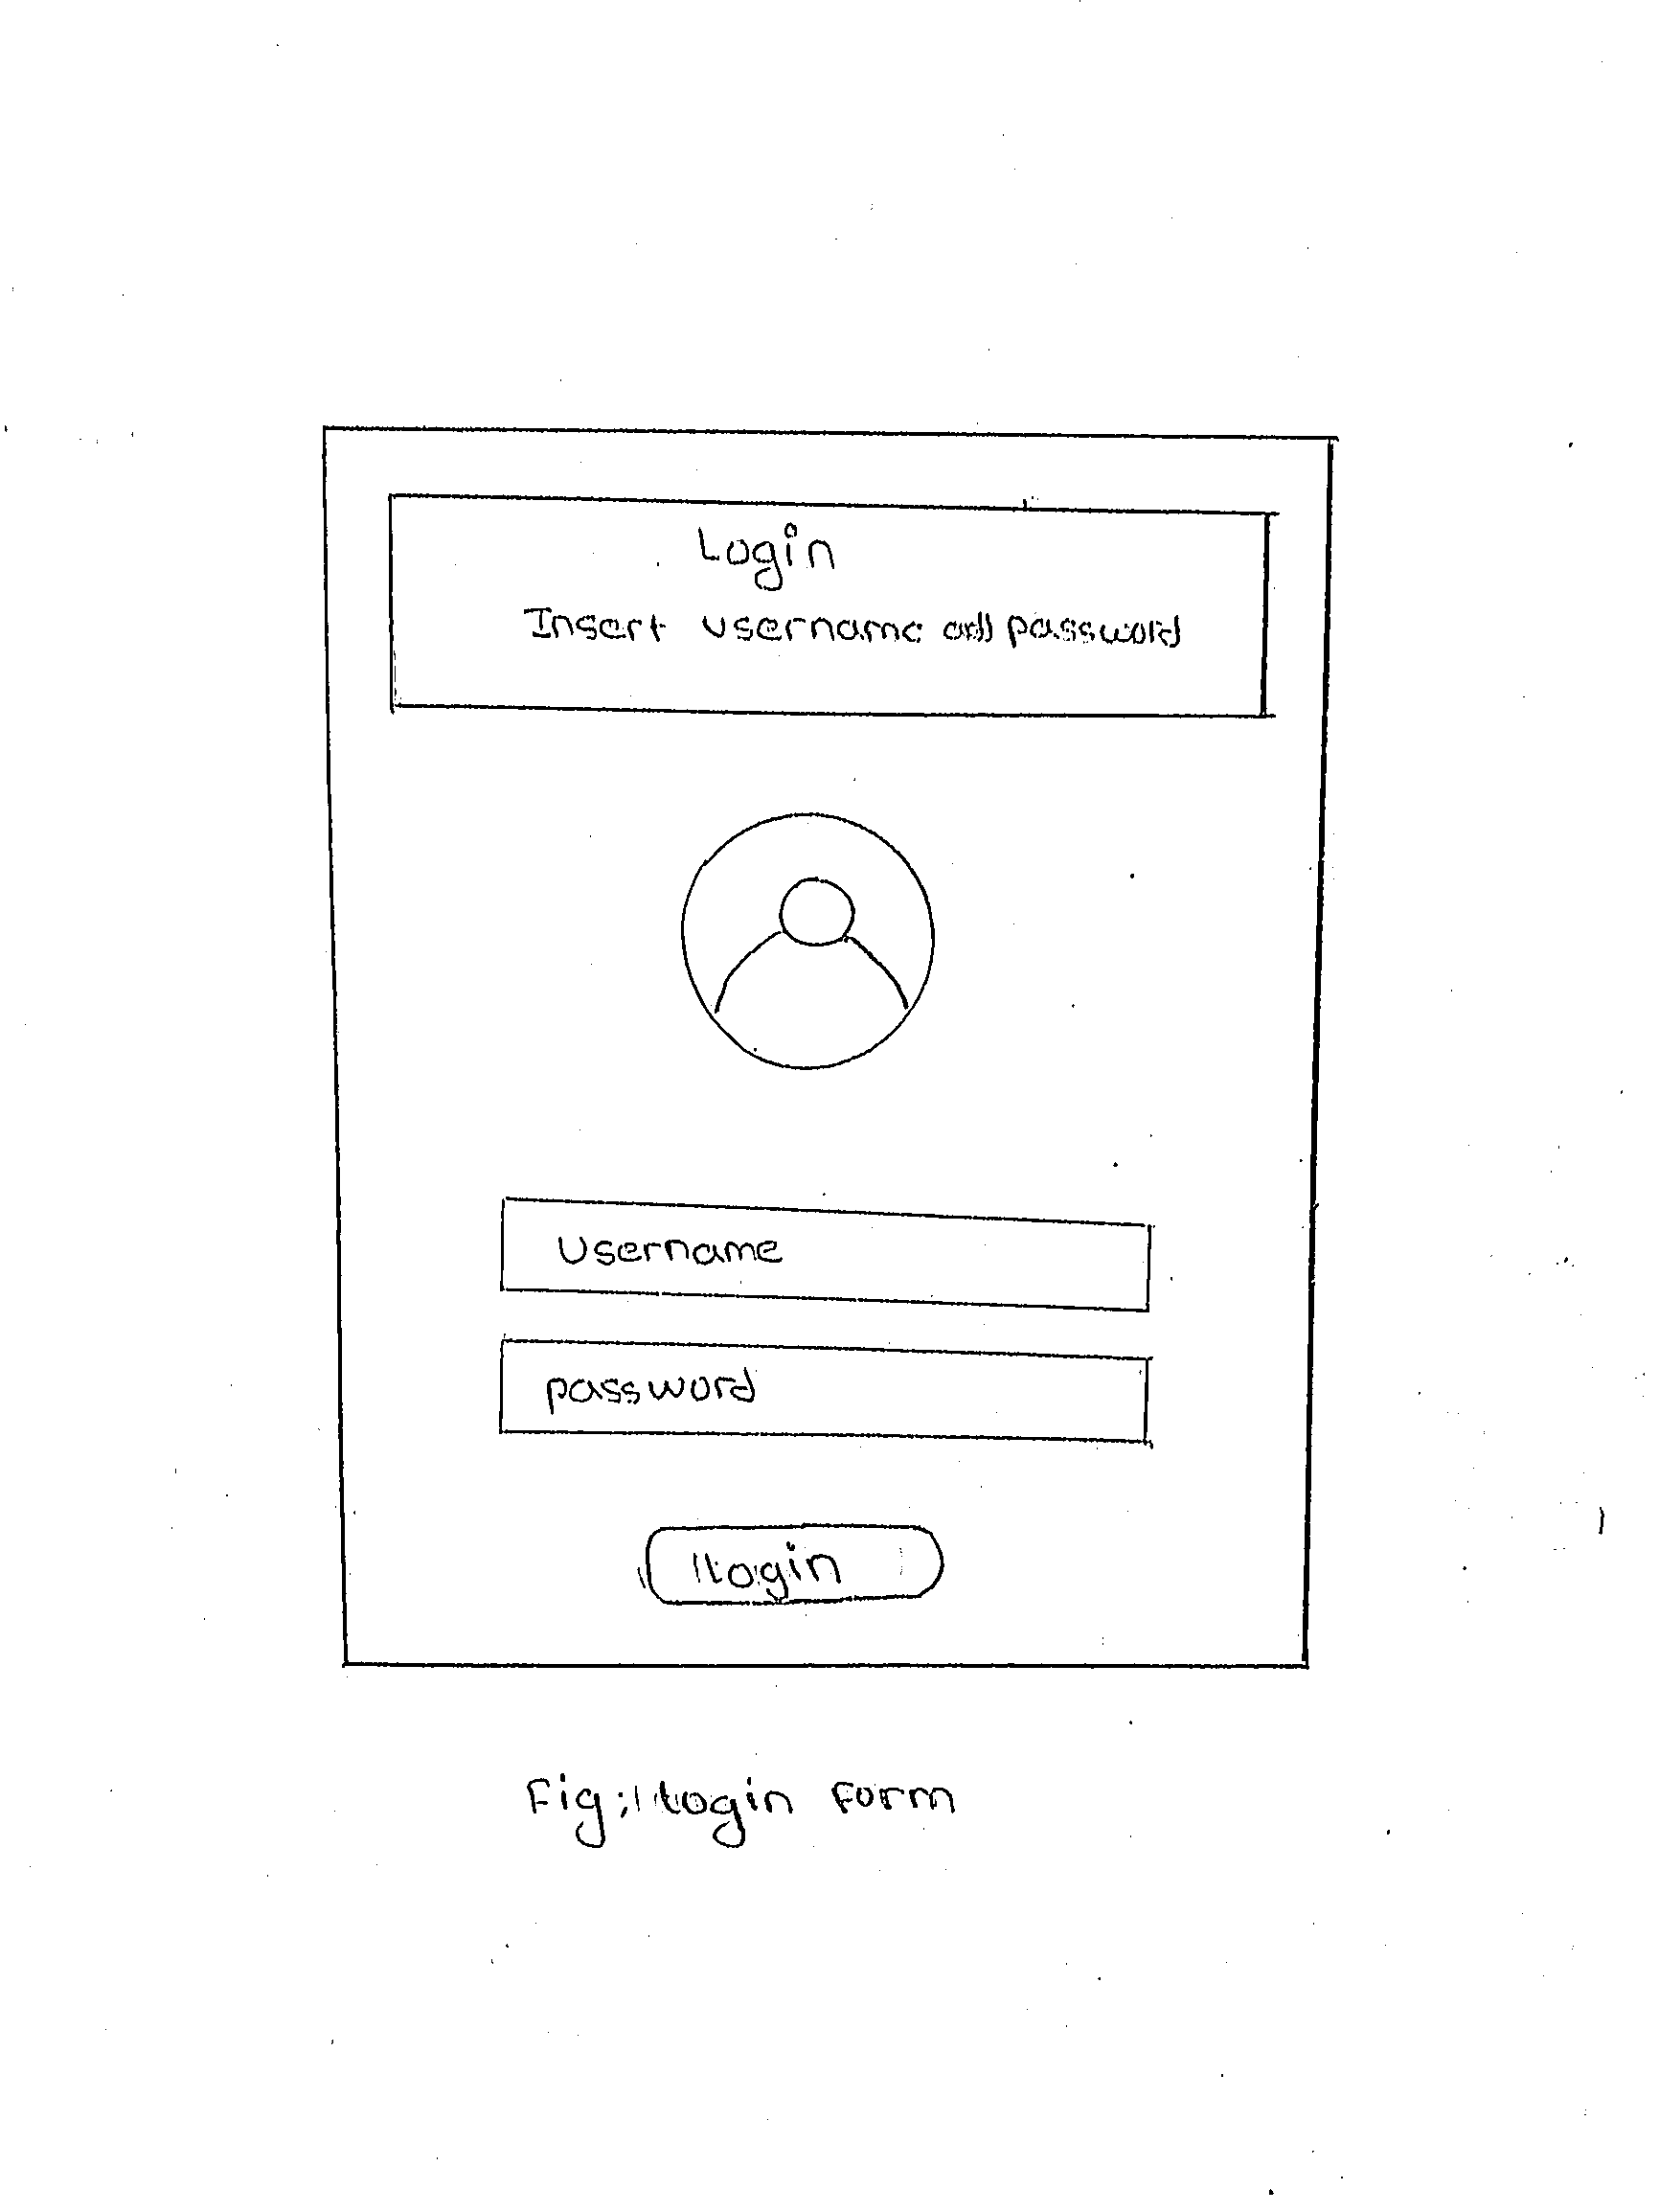 Login
Insert username and password
Username
password
login
Fig: login form